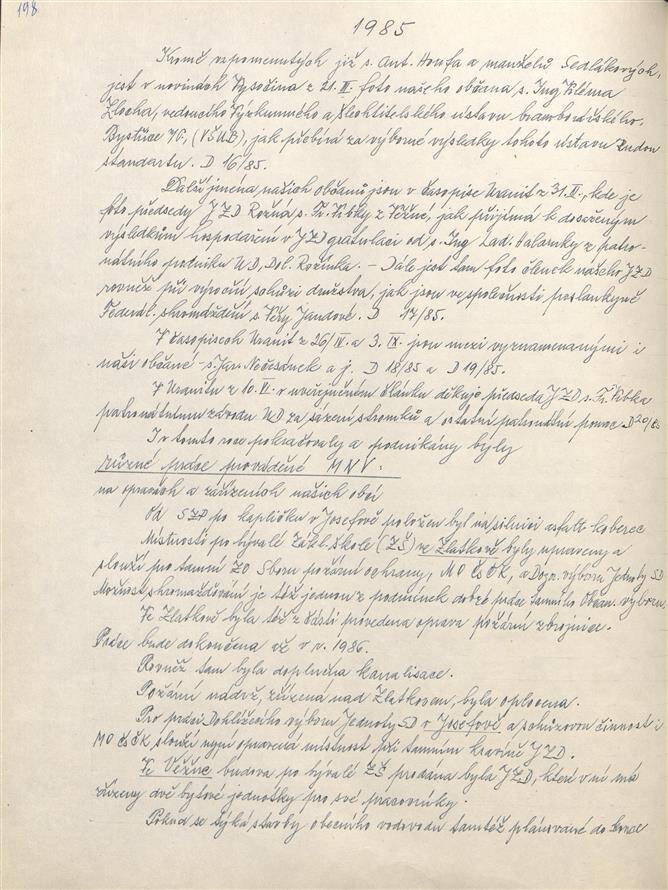 198
1985
Kromě vzpomenutých již s. Ant. Houfa a manželů Sedlákových,
jest v novinách Vysočina z 21. II. foto našeho občana s. Ing Kléma
Zlocha, vedoucího Výzkumného a šlechtitelského ústavu bramborářského.
Bystřice n/P., (VŠÚB), jak přebírá za výborné výsledky tohoto ústavu Rudou
standartu. D 16/85.
Další jména našich občanů jsou v časopise Uranit z 31. II., kde je
foto předsedy JZD Rožná s. Fr. Vibky z Věžné, jak přijímá k dosaženým
výsledkům hospodaření v JZD gratulaci od s. Ing Lad. z patro-
nátního podniku UD, Dol. Rožínka. – Dále jest tam foto členek našeho JZD
rovněž při výroční schůzi družstva, jak jsou ve společnosti poslankyně
Federál. shromáždění s Věry Jandové. D 17/85.
V časopisech Uranit z 26/IV a 3. IX. jsou mezi vyznamenanými i
naši občané s. Jan Nečesánek a j. D 18/85 a D 19/85.
V Uranitu z 10. VI. v uveřejněném článku děkuje předseda JZD s. Fr. Vibka
patronátnímu závodu UD za sázení stromků a ostatní patronátní pomoc D 20/85
I v tomto roce pokračovaly a podnikány byly
různé práce prováděné MNV:
na opravách a zařízeních našich obcí
Od SZP po kapličku v Josefově položen byl na silnici asfalt. koberec
Místnosti po bývalé Zákl. škole (ZŠ) ve Zlatkově byly upraveny a
slouží pro tamní ZO Sboru požární ochrany, MO ČSČK, a Dozor. výboru Jednoty SD
Možnost shromažďování je též jednou z podmínek dobré práce tamního Občan. výboru.
Ve Zlatkově byla též z části provedena oprava požární zbrojnice.
Práce bude dokončena až v r. 1986.
Rovněž tam byla doplněna kanalisace.
Požární nádrž, zřízená nad Zlatkovem, byla oplocena.
Pro práci Dohlížecího výboru Jednoty SD v Josefově a schůzovou činnost i
MO ČSČK slouží nyní opravená místnost při tamním kravíně JZD.
Ve Věžné budova po bývalé ZŠ prodána byla JZD, které v ní má
zřízeny dvě bytové jednotky pro své pracovníky.
Pokud se týká stavby obecního vodovodu tamtéž plánované do konce